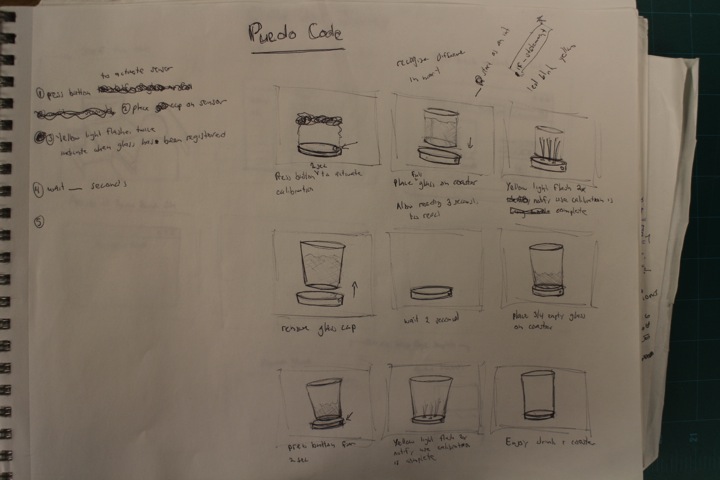 Puedo Code
to activate sensor
① press button
② place cup on sensor
③ Yellow light flashes twice
indicate when glass has been registered
④ wait __ seconds
⑤
recognise difference
in wait
3 sec
Press button ^ to activate
calibration
full
Place ^ glass on coaster
Allow reading 3 seconds
too read
Yellow light flash 2x
notify use calibration is
complete
remove glass cup
wait 2 second
Place 3/4 empty glass
on coaster
press button for
3 sec
Yellow light flash 2x
notify use calibration
is complete
Enjoy drink + coaster